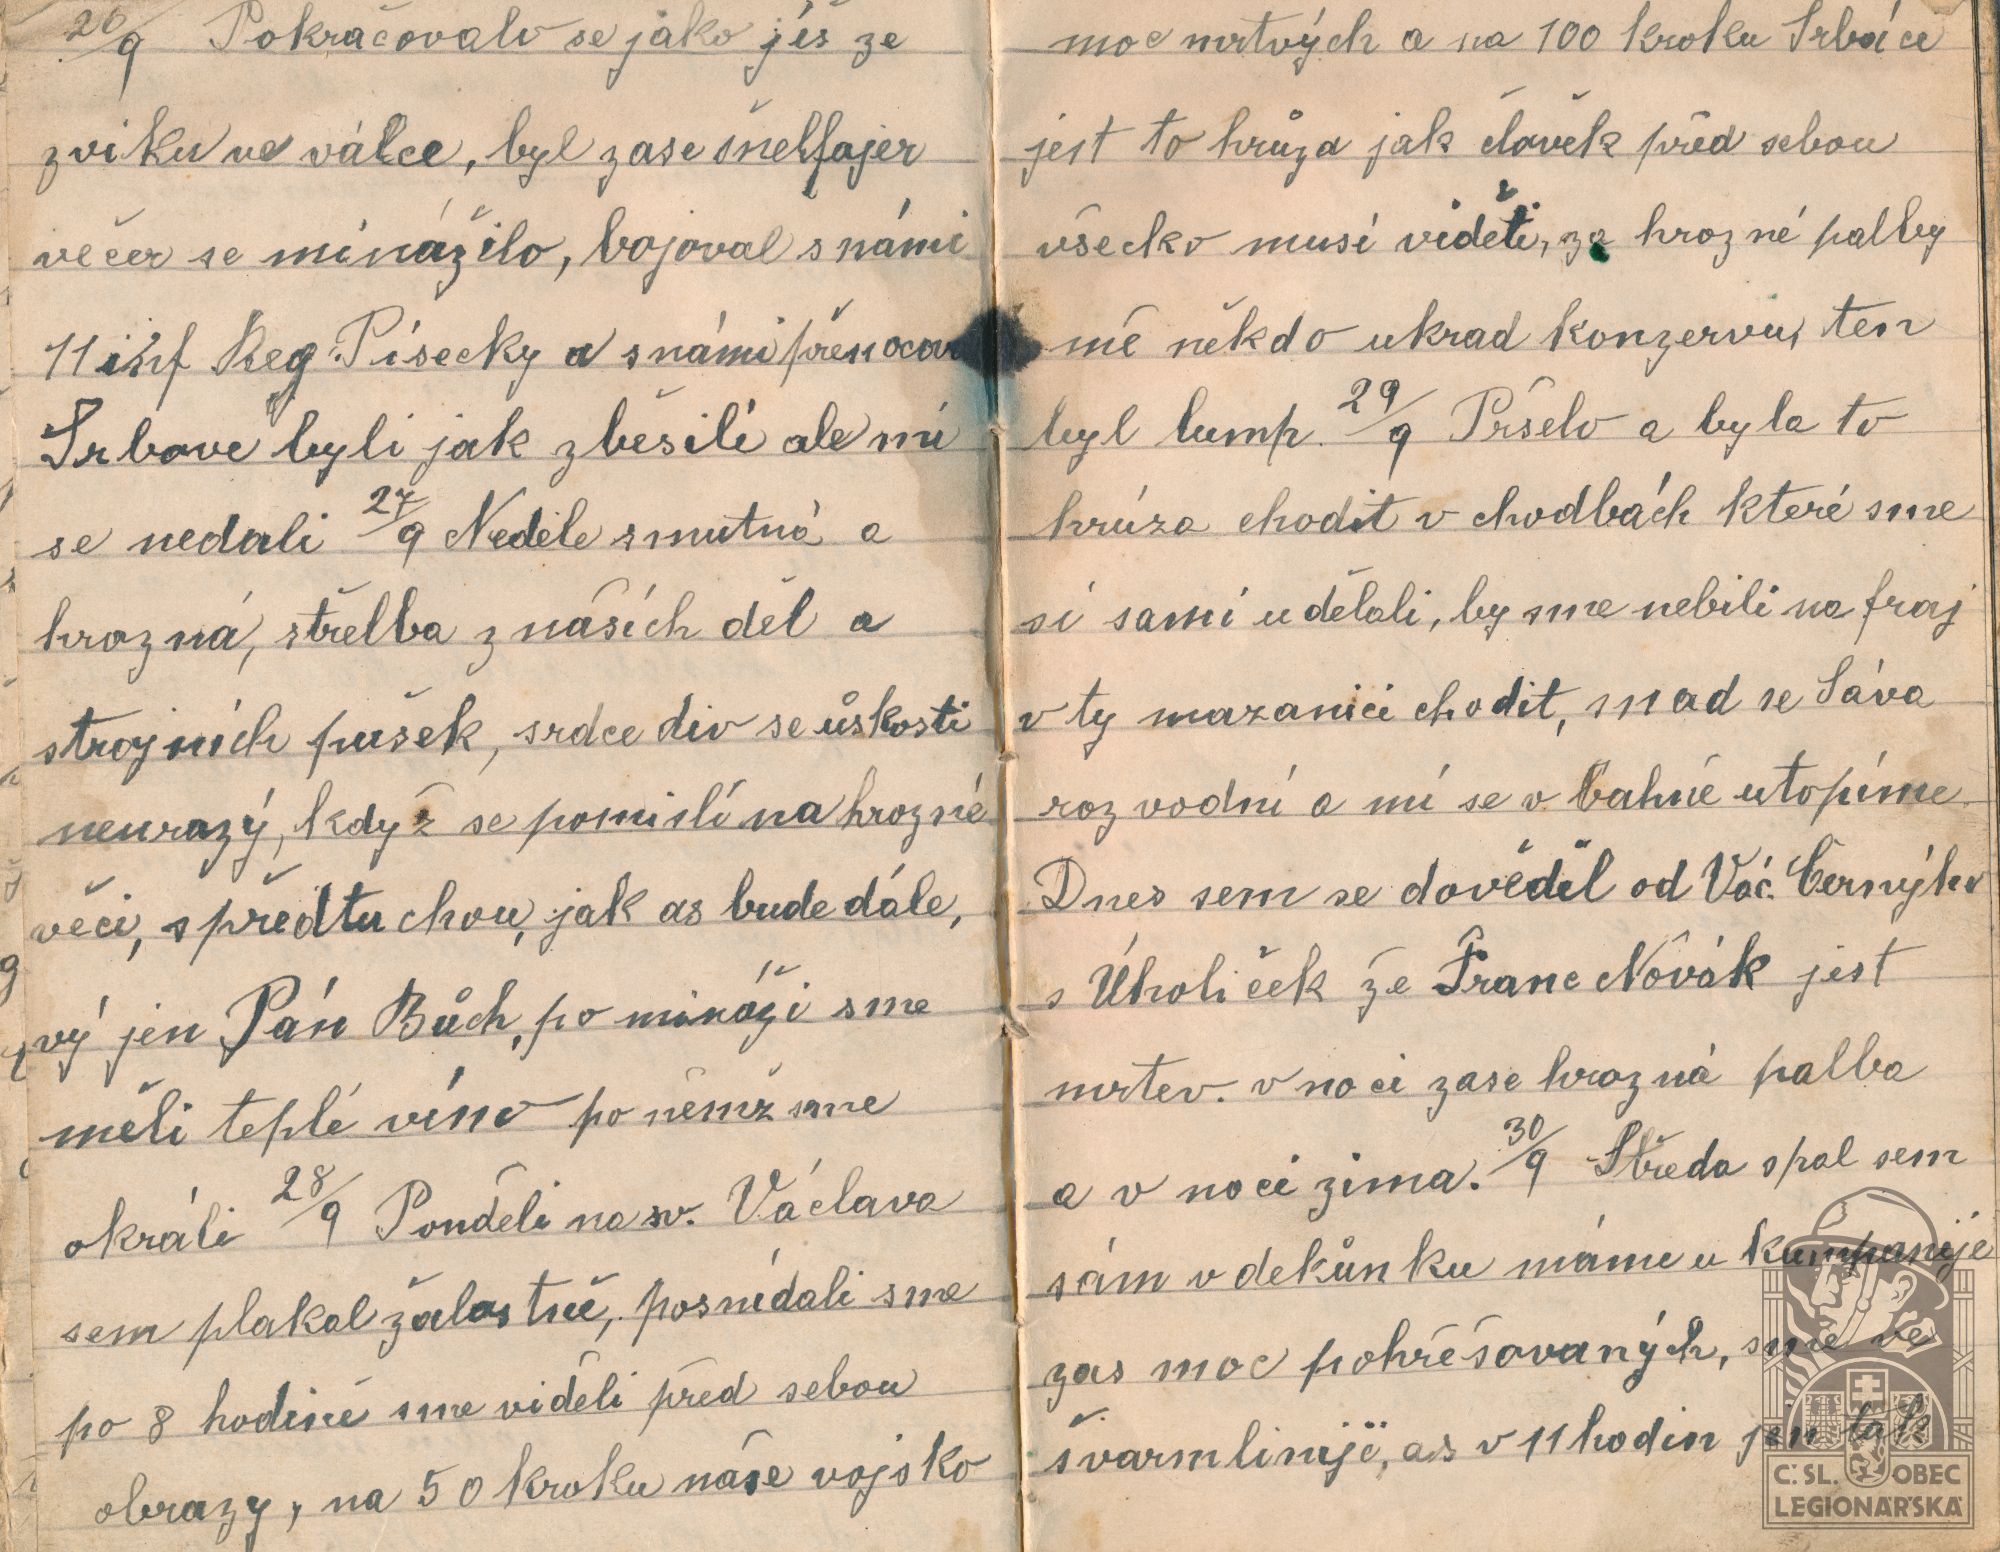 26/9 Pokračovalo se jako jeś ze
zviku ve válce, byl zase šnelfajer
večer se mináźilo, bojoval s námi
11 inf Reg. Písecky a s námi přenocoval
Srbove byli jak zběsilí ale mi
se nedali 27/9 Neděle smutná a
hrozná, střelba z našich děl a
strojních pušek, srdce div se ůskosti
neurazý, když se pomislí na hrozné
věci, s předtuchou, jak as bude dále,
vý jen Pán Bůch, po mináži sme
měli teplé víno po němž sme
okráli 28/9 Ponděli na sv. Václava
sem plakal žalostně, posnídali sme
po 8 hodině sme viděli před sebou
obrazy, na 50 kroku náše vojsko
moc mrtvých a na 100 kroku Srbáce
jest to hrůza jak človĕk před sebou
všecko musí viděti, za hrozné palby
mě někdo ukrad konzervu, ten
byl lump. 29/9 Pršelo a byla to
hrúza chodit v chodbách které sme
si sami udělali, by sme nebili na fraj
v ty mazanici chodit, snad se Sáva
rozvodní a mi se v bahně utopíme.
Dnes sem se dověděl od Vác. Černýho
s Úholiček že Franc Novák jest
mrtev. v noci zase hrozná palba
a v noci zima. 30/9 Středa spal sem
sám v dekůnku máme u kumpanije
zas moc pohřešovaných, sme ve
švarmliniji, as v 11 hodin jen tak
Č. SL. OBEC
LEGIONÁŘSKÁ